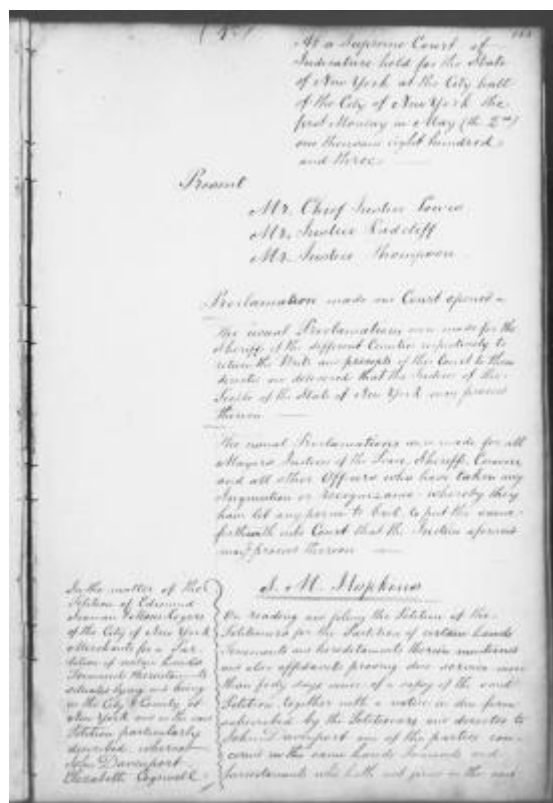 At a Supreme Court of
Judicature held for the State
of New York at the City hall
of the City of New York the
first Monday in May (the 2nd)
one thousand eight hundred
and three
Present
Mr. Chief Justice Lewis
Mr. Justice Radcliff
Mr. Justice Thompson
Proclamation made and Court opened
The usual Proclamations were made for the
Sheriffs of the different Counties respectively to
return the Writs and precepts of this Court to them
directed and delivered that the Justices of the
People of the State of New York may proceed
thereon
The usual Proclamations were made for all
Mayors Justices of the Peace, Sheriffs, Coroners
and all other Officers who have taken any
Inquisition or Recognizance whereby they
have let any person to bail to put the same
forthwith into Court that the Justices aforesaid
may proceed thereon
In the matter of the
Petition of Edmund
Seaman Rogers
of the City of New York
Merchants for a Par-
tition of certain Lands
Tenements
situated lying and being
in the City & County of
New York and in the said
Petition particularly
described whereof
John Davenport
Elizabeth Cogswell &
S. M. Hopkins
On reading and filing the Petition of the
Petitioners for the Partition of certain Lands
Tenements and hereditaments therein mentioned
and also affidavits proving due service more
than forty days since of a copy of the said
Petition together with a notice in due form
subscribed by the Petitioners and directed to
John Davenport one of the parties con-
cerned in the same Lands Tenements and
hereditaments who hath not given in the said